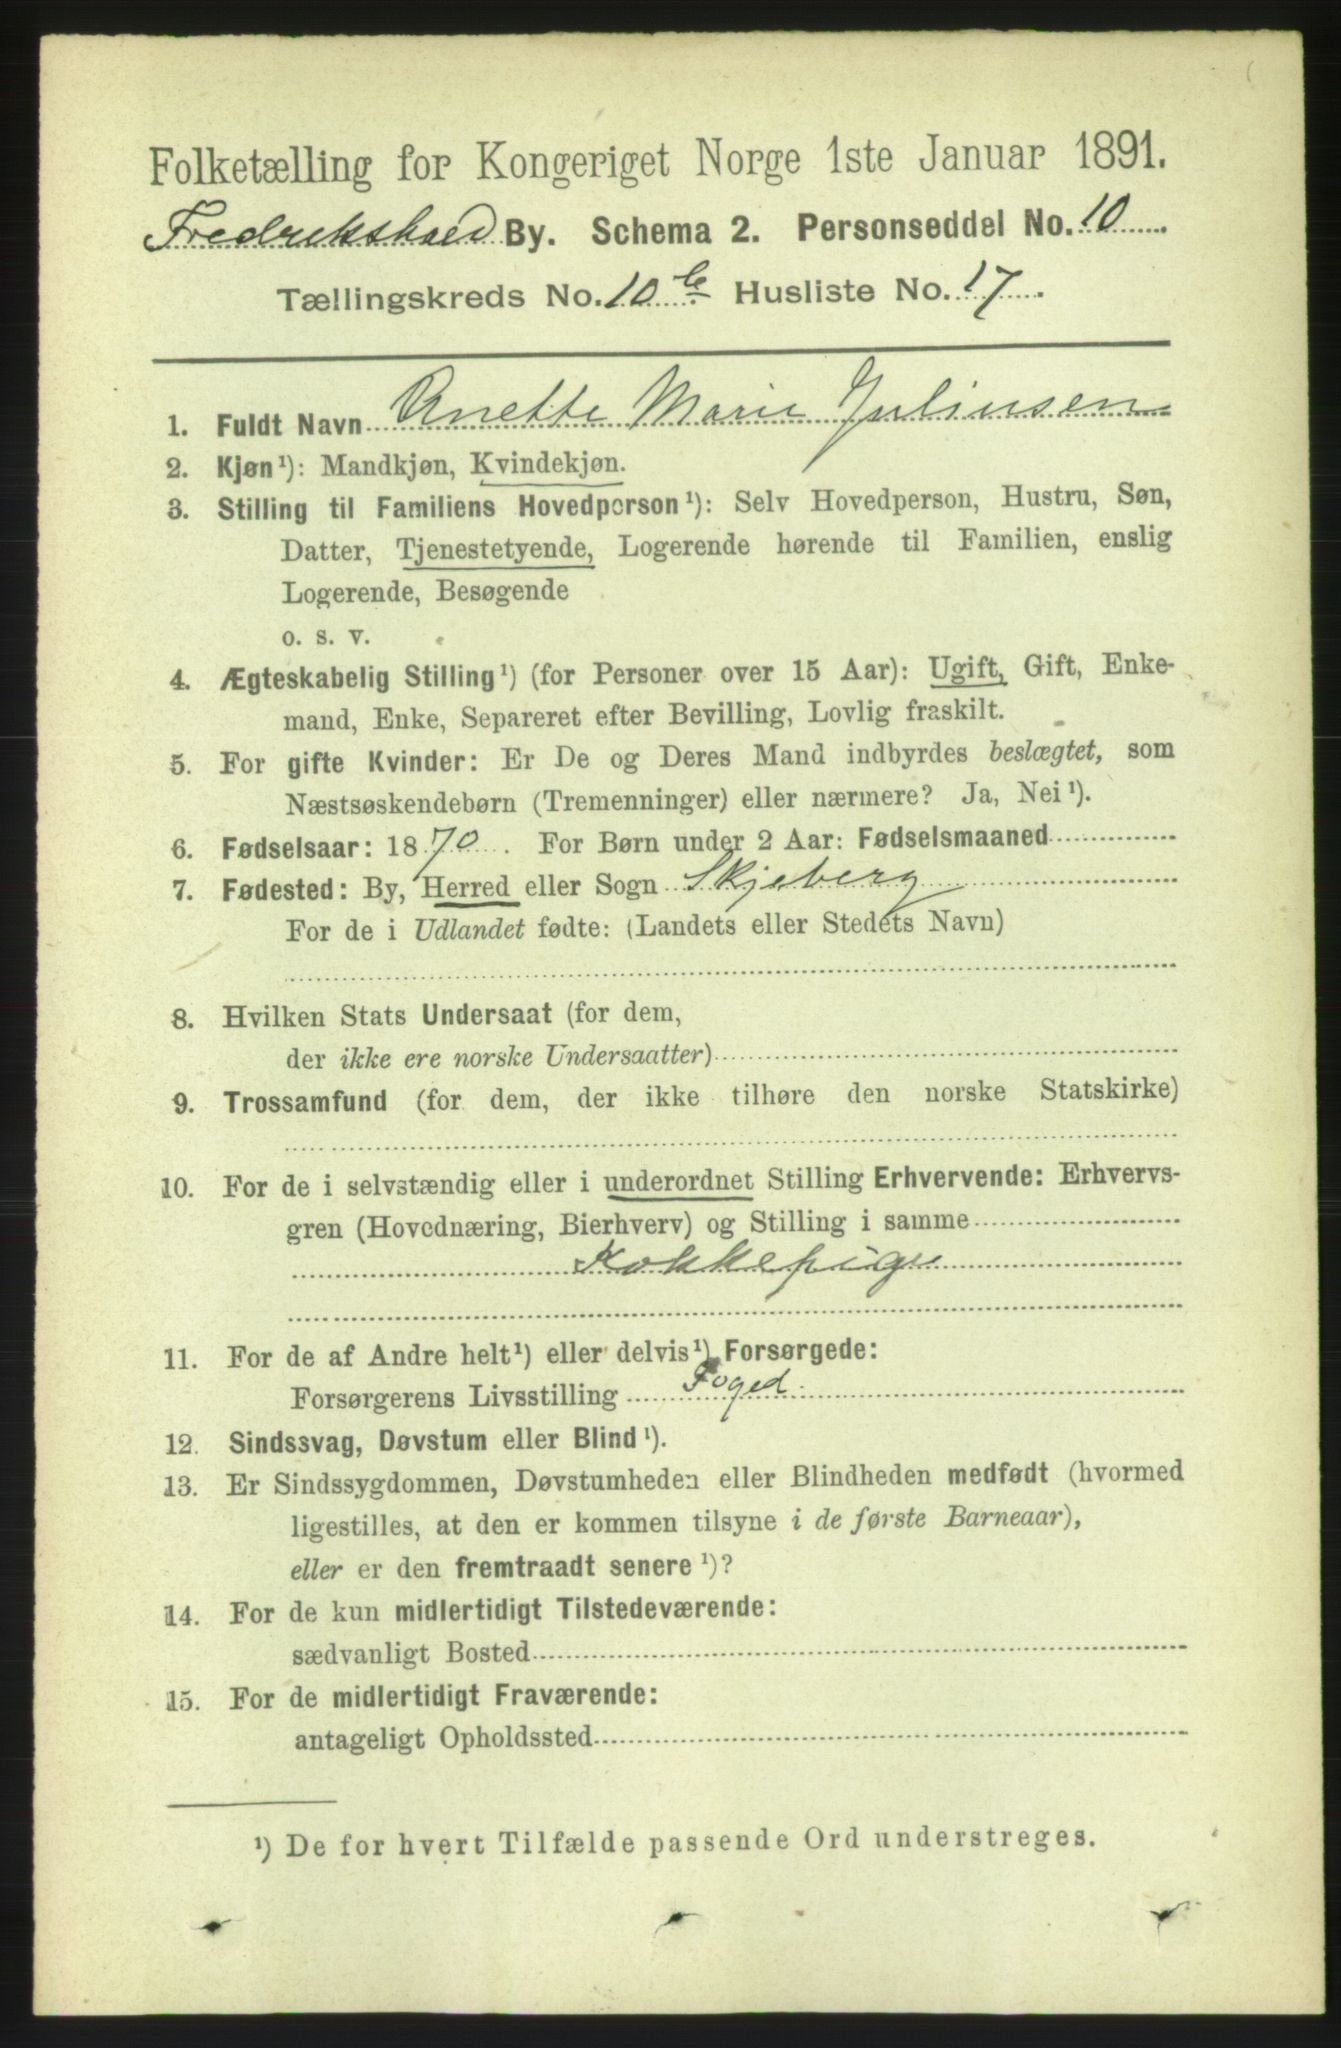 Folketælling for Kongeriget Norge 1ste Januar 1891.
Fredrikshald By. Schema 2. Personseddel No. 10
Tællingskreds No. 10 b Husliste No. 17.
1. Fuldt Navn Anette Marie Juliussen
2. Kjøn¹): Mandkjøn, Kvindekjøn.
3. Stilling til Familiens Hovedperson¹): Selv Hovedperson, Hustru, Søn,
Datter, Tjenestetyende, Logerende hørende til Familien, enslig
Logerende, Besøgende
o. s. v.
4. Ægteskabelig Stilling¹) (for Personer over 15 Aar): Ugift, Gift, Enke-
mand, Enke, Separeret efter Bevilling, Lovlig fraskilt.
5. For gifte Kvinder: Er De og Deres Mand indbyrdes beslægtet, som
Næstsøskendebørn (Tremenninger) eller nærmere? Ja, Nei¹).
6. Fødselsaar: 1870. For Børn under 2 Aar: Fødselsmaaned
7. Fødested: By, Herred eller Sogn Skjeberg
For de i Udlandet fødte: (Landets eller Stedets Navn)
8. Hvilken Stats Undersaat (for dem,
der ikke ere norske Undersaatter)
9. Trossamfund (for dem, der ikke tilhøre den norske Statskirke)
10. For de i selvstændig eller i underordnet Stilling Erhvervende: Erhvervs-
gren (Hovednæring, Bierhverv) og Stilling i samme
Kokkepige
11. For de af Andre helt¹) eller delvis¹) Forsørgede:
Forsørgerens Livsstilling Foged.
12. Sindssvag, Døvstum eller Blind¹).
13. Er Sindssygdommen, Døvstumheden eller Blindheden medfødt (hvormed
ligestilles, at den er kommen tilsyne i de første Barneaar),
eller er den fremtraadt senere¹)?
14. For de kun midlertidigt Tilstedeværende:
sædvanligt Bosted
15. For de midlertidigt Fraværende:
antageligt Opholdssted
¹) De for hvert Tilfælde passende Ord understreges.